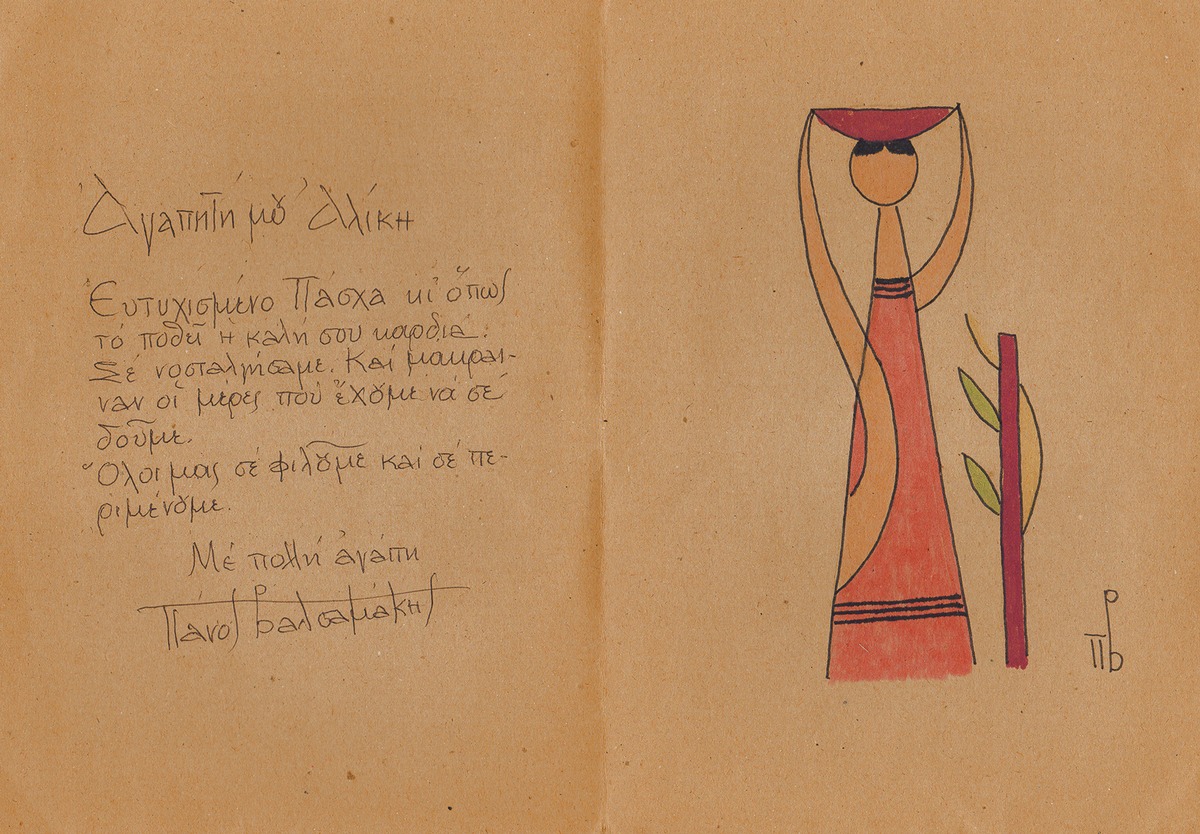 Ἀγαπητή μȣ Ἀλίκη
Εὐτυχισμένο Πάσχα κι' ὅπως
τό ποθεῖ ἡ καλή σου καρδιά.
Σέ νοσταλγήσαμε. Καί μακραί-
ναν οἱ μέρες πού ἔχȣμε νά σέ
δοῦμε.
Ὅλοι μας σέ φιλȣ͂με καί σέ πε-
ριμένȣμε.
Μέ πολλή ἀγάπη
Πάνος Βαλσαμάκης
ΠΒ